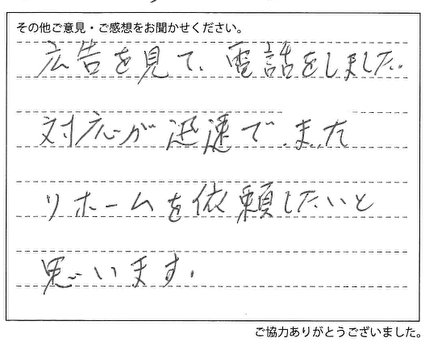 その他ご意見・ご感想をお聞かせください。
広告を見て、電話をしました。
対応が迅速で、また
リホームを依頼したいと
思います。
ご協力ありがとうございました。